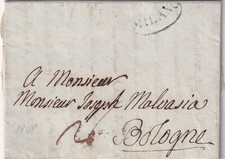 MILANO
A Monsieur
Monsieur Joseph Malvasia
Bologne